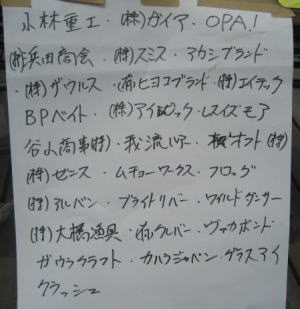 小林重工・(株)ガイア・OPA!
(有)浜田商会・(株)スミス・アカシブランド
(株)ザウルス・(有)ヒヨコブランド・(株)エイテック
BPベイト・(株)アイビック・レスイズモア
谷山商事(株)・我流ルアー・オフト(株)
(株)ゼニス・ムチョーワークス・フロッグ
(株)アルバン・ブライトリバー・ワイルドダンサー
(株)大橋漁具・(有)クルバー・ヴァガボンド
ガウラクラフト・カハラジャパン・グラスアイ
クラッシュ